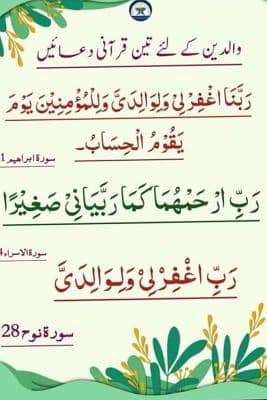 والدین کے لئے تین قرآنی دعائیں
رَبَّنَا اغْفِرْ لِیْ وَلِوَالِدَیَّ وَلِلْمُؤْمِنِیْنَ یَوْمَ
یَقُوْمُ الْحِسَابُ۔
سورۃ ابراھیم 1
رَبِّ ارْحَمْهُمَا كَمَا رَبَّیَانِیْ صَغِیْرًا
سورۃ الاسراء 4
رَبِّ اغْفِرْ لِیْ وَلِوَالِدَیَّ
سورۃ نوح 28